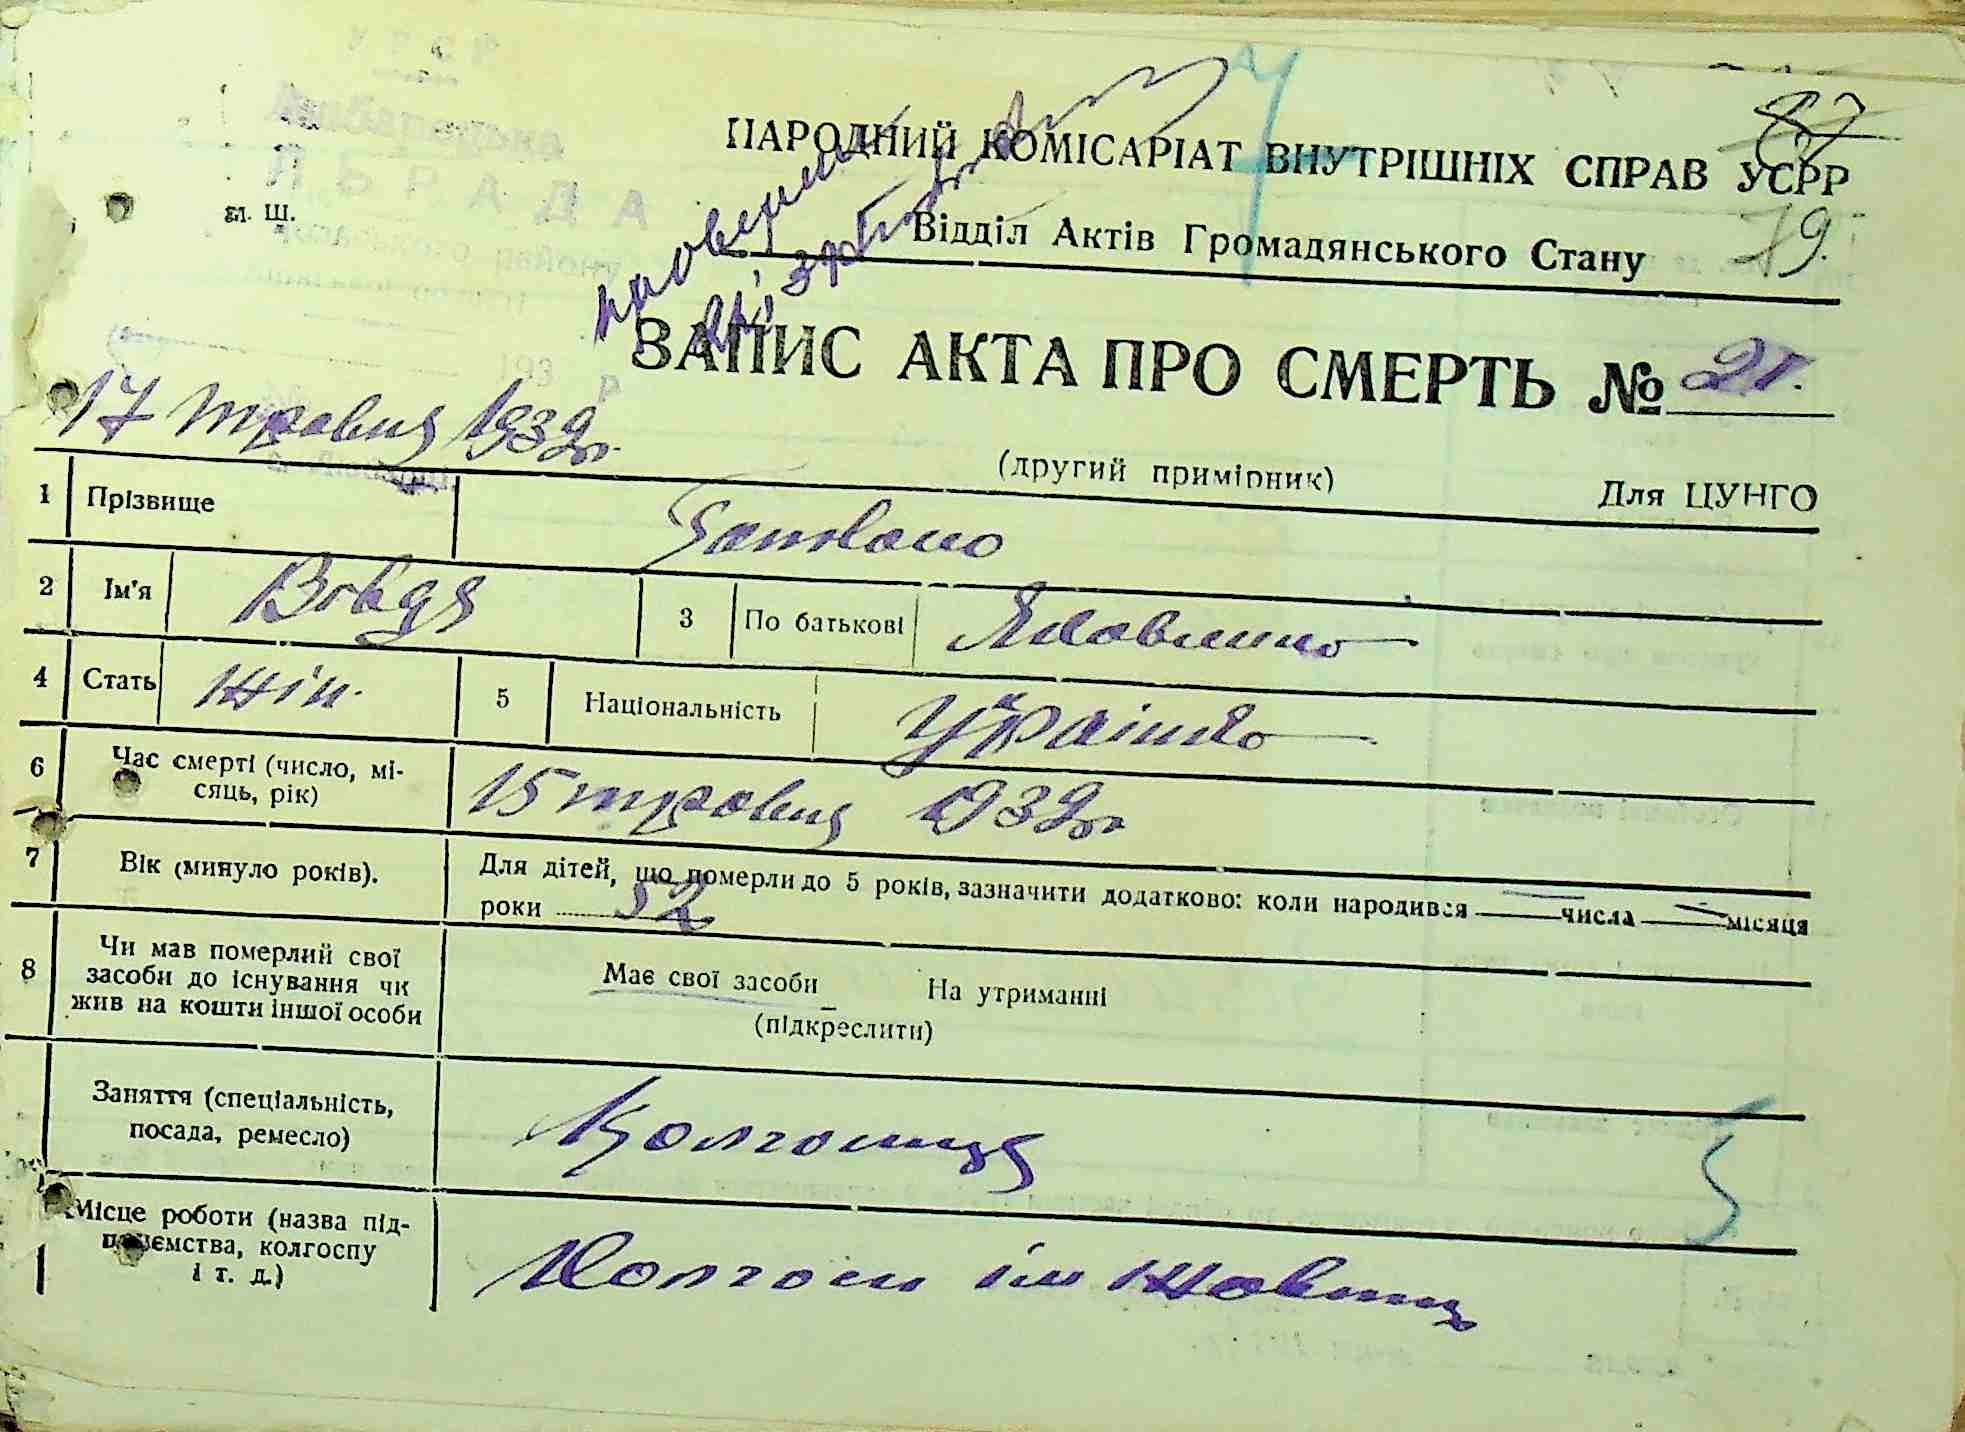 НАРОДНИЙ КОМІСАРІАТ ВНУТРІШНІХ СПРАВ УСРР
87
Відділ Актів Громадянського Стану
19.
ЗАПИС АКТА ПРО СМЕРТЬ № 21.
17 травня 1939 р.
(другий примірник)
Для ЦУНГО
1 Прізвище
2 Ім'я Вовдя 3 По батькові Яковлевна
4 Стать жін. 5 Національність Українка
6 Час смерті (число, місяць, рік) 15 травня 1939 р.
7 Вік (минуло років). Для дітей, що померли до 5 років, зазначити додатково: коли народився числа місяця
роки 52
8 Чи мав померлий свої засоби до існування чи жив на кошти іншої особи
Має свої засоби На утриманні
(підкреслити)
Заняття (спеціальність, посада, ремесло) Колгоспниця
Місце роботи (назва підприємства, колгоспу і т. д.) Колгосп ім